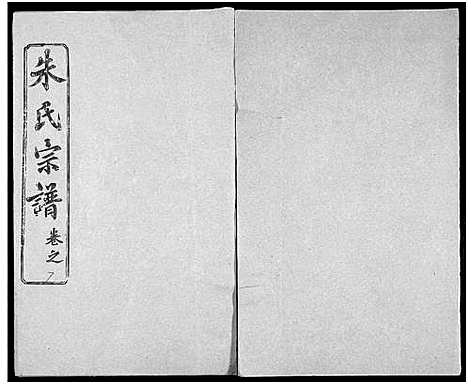 朱氏宗譜卷之